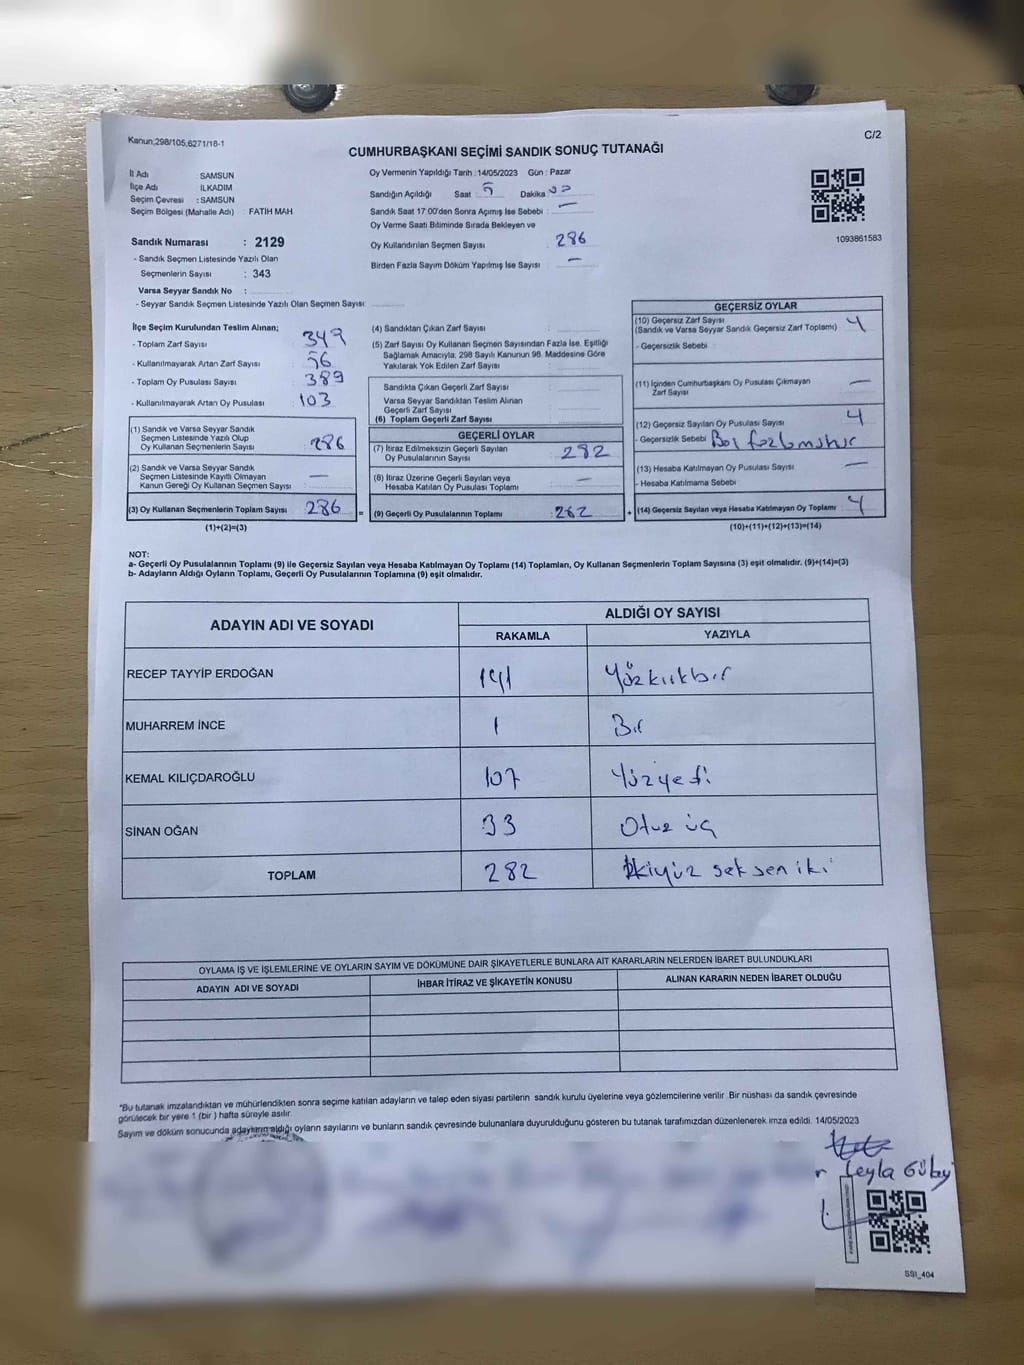 Kanun;298/105,6271/18-1
C/2
CUMHURBAŞKANI SEÇİMİ SANDIK SONUÇ TUTANAĞI
İl Adı SAMSUN
İlçe Adı İLKADIM
Seçim Çevresi : SAMSUN
Seçim Bölgesi (Mahalle Adı) : FATİH MAH
Sandık Numarası : 2129
- Sandık Seçmen Listesinde Yazılı Olan
Seçmenlerin Sayısı : 343
Varsa Seyyar Sandık No :
- Seyyar Sandık Seçmen Listesinde Yazılı Olan Seçmen Sayısı:
Oy Vermenin Yapıldığı Tarih :14/05/2023 Gün : Pazar
Sandığın Açıldığı Saat : 5 Dakika :
Sandık Saat 17:00'den Sonra Açımış İse Sebebi : —
Oy Verme Saati Bitiminde Sırada Bekleyen ve
Oy Kullandırılan Seçmen Sayısı : 286
Birden Fazla Sayım Döküm Yapılmış İse Sayısı : —
1093861583
İlçe Seçim Kurulundan Teslim Alınan;
- Toplam Zarf Sayısı : 342
- Kullanılmayarak Artan Zarf Sayısı : 56
- Toplam Oy Pusulası Sayısı : 389
- Kullanılmayarak Artan Oy Pusulası : 103
(1) Sandık ve Varsa Seyyar Sandık
Seçmen Listesinde Yazılı Olup
Oy Kullanan Seçmenlerin Sayısı : 286
(2) Sandık ve Varsa Seyyar Sandık
Seçmen Listesinde Kayıtlı Olmayan
Kanun Gereği Oy Kullanan Seçmen Sayısı : —
(3) Oy Kullanan Seçmenlerin Toplam Sayısı : 286
(1)+(2)=(3)
(4) Sandıktan Çıkan Zarf Sayısı :
(5) Zarf Sayısı Oy Kullanan Seçmen Sayısından Fazla İse, Eşitliği
Sağlamak Amacıyla, 298 Sayılı Kanunun 98. Maddesine Göre
Yakılarak Yok Edilen Zarf Sayısı :
Sandıkta Çıkan Geçerli Zarf Sayısı :
Varsa Seyyar Sandıktan Teslim Alınan
Geçerli Zarf Sayısı :
(6) Toplam Geçerli Zarf Sayısı :
GEÇERLİ OYLAR
(7) İtiraz Edilmeksizin Geçerli Sayılan
Oy Pusulalarının Sayısı : 282
(8) İtiraz Üzerine Geçerli Sayılan veya
Hesaba Katılan Oy Pusulası Toplamı : —
= (9) Geçerli Oy Pusulalarının Toplamı : 282
GEÇERSİZ OYLAR
(10) Geçersiz Zarf Sayısı
(Sandık ve Varsa Seyyar Sandık Geçersiz Zarf Toplamı) : 4
- Geçersizlik Sebebi :
(11) İçinden Cumhurbaşkanı Oy Pusulası Çıkmayan
Zarf Sayısı : —
(12) Geçersiz Sayılan Oy Pusulası Sayısı : 4
- Geçersizlik Sebebi :
(13) Hesaba Katılmayan Oy Pusulası Sayısı : —
- Hesaba Katılmama Sebebi :
+ (14) Geçersiz Sayılan veya Hesaba Katılmayan Oy Toplamı : 4
(10)+(11)+(12)+(13)=(14)
NOT:
a- Geçerli Oy Pusulalarının Toplamı (9) ile Geçersiz Sayılan veya Hesaba Katılmayan Oy Toplamı (14) Toplamları, Oy Kullanan Seçmenlerin Toplam Sayısına (3) eşit olmalıdır. (9)+(14)=(3)
b- Adayların Aldığı Oyların Toplamı, Geçerli Oy Pusulalarının Toplamına (9) eşit olmalıdır.
ADAYIN ADI VE SOYADI ALDIĞI OY SAYISI
RAKAMLA YAZIYLA
RECEP TAYYİP ERDOĞAN 141 Yüzkırkbir
MUHARREM İNCE 1 Bir
KEMAL KILIÇDAROĞLU 107 Yüzyedi
SİNAN OĞAN 33 Otuz üç
TOPLAM 282 İkiyüz seksen iki
OYLAMA İŞ VE İŞLEMLERİNE VE OYLARIN SAYIM VE DÖKÜMÜNE DAİR ŞİKAYETLERLE BUNLARA AİT KARARLARIN NELERDEN İBARET BULUNDUKLARI
ADAYIN ADI VE SOYADI İHBAR İTİRAZ VE ŞİKAYETİN KONUSU ALINAN KARARIN NEDEN İBARET OLDUĞU
*Bu tutanak imzalandıktan ve mühürlendikten sonra seçime katılan adayların ve talep eden siyasi partilerin sandık kurulu üyelerine veya gözlemcilerine verilir. Bir nüshası da sandık çevresinde
görülecek bir yere 1 (bir ) hafta süreyle asılır.
Sayım ve döküm sonucunda adayların aldığı oyların sayılarını ve bunların sandık çevresinde bulunanlara duyurulduğunu gösteren bu tutanak tarafımızdan düzenlenerek imza edildi. 14/05/2023
Leyla
SSI_404